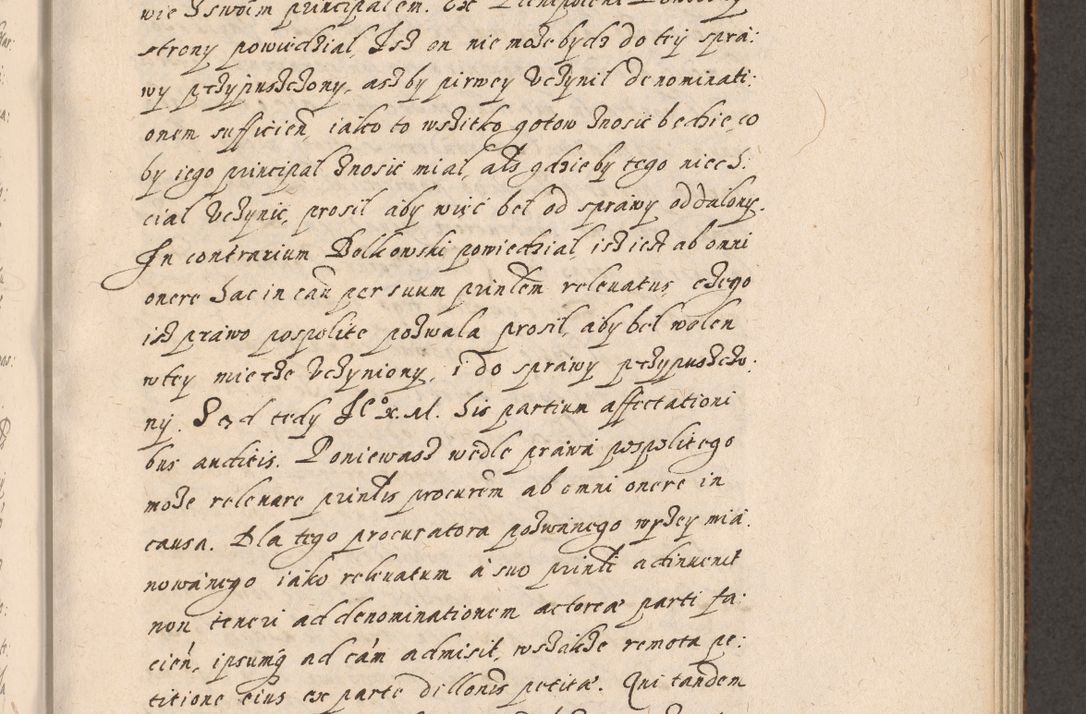 wie z swoim principalem. Ex
strony powiedzial, Isz on nie może bydz do tey spra:
wy przypuszczony, aszby pirwey uczynil denominati:
onem sufficien, iako to wszitko gotow znosic bedzie, co
by iego principal znosic mial, als gdzieby tego niech:
cial uczynic, prosil aby więc bel od sprawy oddalony.
In contrarium Bolkowski powiedzial isz iest ab omni
onere hac in cau per suum prinlem releuatus, czego
isz prawo pospolite pozwala prosil, aby bel wolen
w tey mierze uczyniony, i do sprawy przypuszczo:
ny. Sąd tedy Jᵉᵒ K. M. his partium affectationi
bus auditis. Poniewasz wedle prawa pospolitego
może releuare prinlis procurem ab omni onere in
causa. Dla tego procuratora pozwanego wyżey mia:
nowanego iako releuatum a suo prinli adinuenit
non teneri ad denominationem actoreæ parti fa:
cien, ipsumq ad cam admisit, wszakże remota pe:
titione eius ex parte dillonis petitæ. Qui tandem